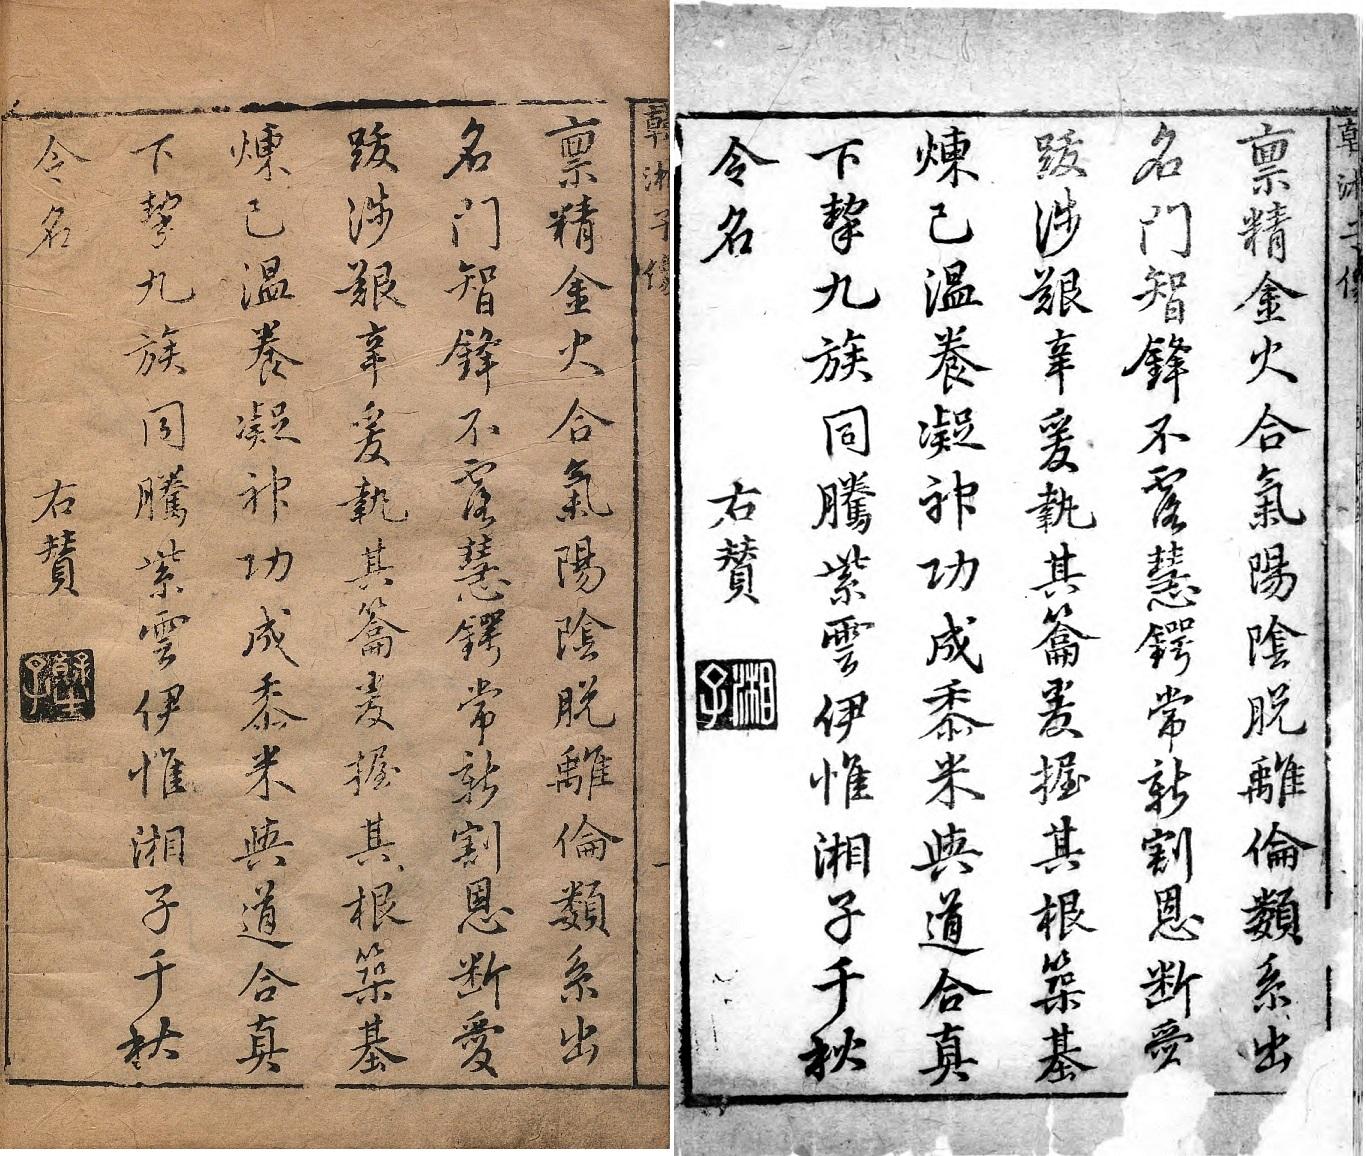 韓湘子像
稟精金火合氣陽陰脱離倫類系出
名門智鋒不露慧鍔常新割恩断愛
跋涉艱辛爰執其籥爰握其根築基
煉己温養凝神功成黍米與道合真
下挈九族同騰紫雲伊惟湘子千秋
令名
右贊
韓湘子像
稟精金火合氣陽陰脱離倫類系出
名門智鋒不露慧鍔常新割恩断愛
跋涉艱辛爰執其籥爰握其根築基
煉己温養凝神功成黍米與道合真
下挈九族同騰紫雲伊惟湘子千秋
令名
右贊
湘子